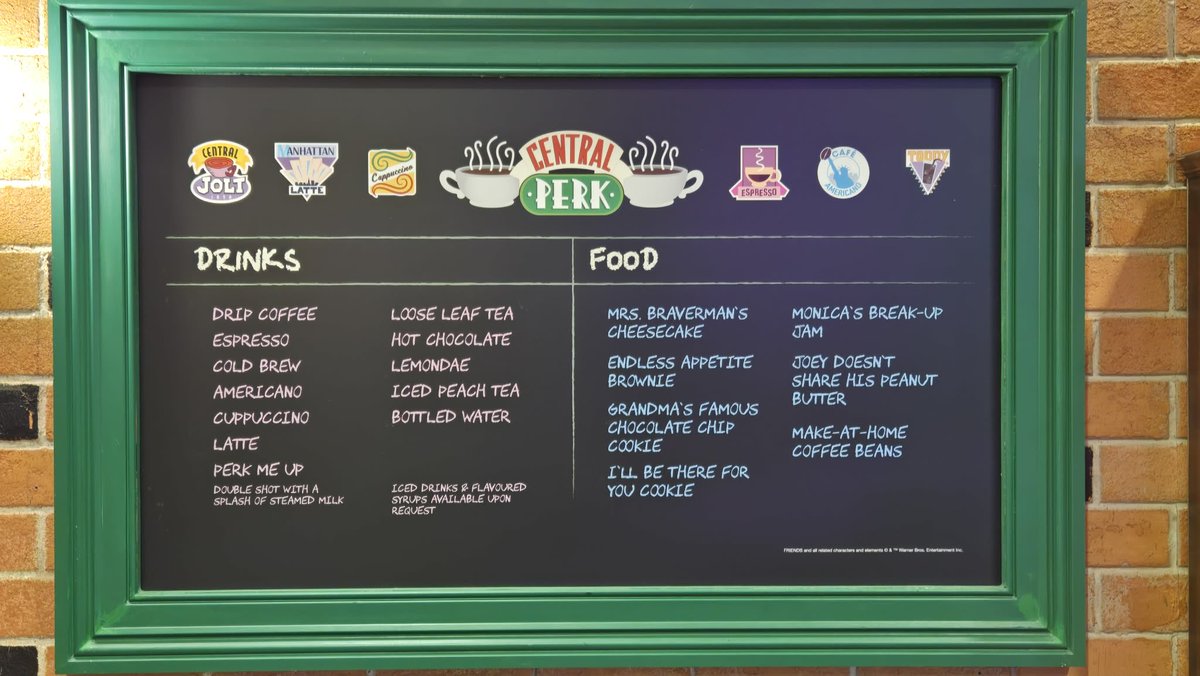 CENTRAL
JOLT
MANHATTAN
LATTE
Cappuccino
CENTRAL
PERK
ESPRESSO
CAFÉ
AMERICANO
TODDY
DRINKS
DRIP COFFEE
ESPRESSO
COLD BREW
AMERICANO
CUPPUCCINO
LATTE
PERK ME UP
DOUBLE SHOT WITH A
SPLASH OF STEAMED MILK
LOOSE LEAF TEA
HOT CHOCOLATE
LEMONDAE
ICED PEACH TEA
BOTTLED WATER
ICED DRINKS & FLAVOURED
SYRUPS AVAILABLE UPON
REQUEST
FOOD
MRS. BRAVERMAN'S
CHEESECAKE
ENDLESS APPETITE
BROWNIE
GRANDMA'S FAMOUS
CHOCOLATE CHIP
COOKIE
I'LL BE THERE FOR
YOU COOKIE
MONICA'S BREAK-UP
JAM
JOEY DOESN'T
SHARE HIS PEANUT
BUTTER
MAKE-AT-HOME
COFFEE BEANS
FRIENDS and all related characters and elements © & ™ Warner Bros. Entertainment Inc.